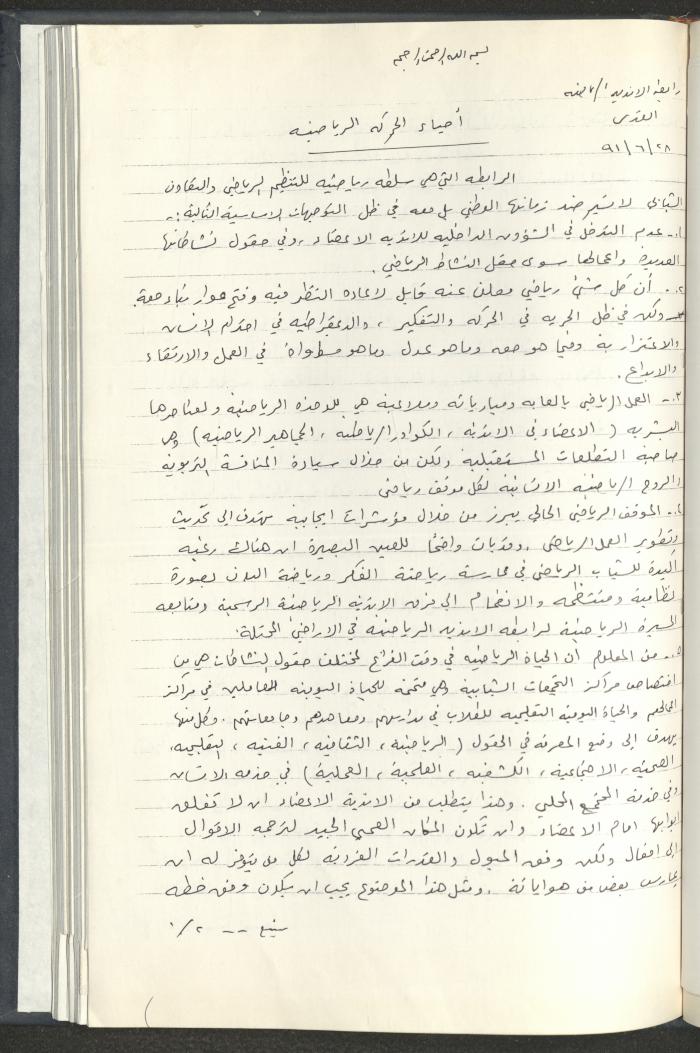 بسم الله الرحمن الرحيم
رابطة الاندية الرياضية
القدس
٩١/٦/٢٨
أحياء الحركة الرياضية
الرابطه التي هي سلطه رياضيه للتنظيم الرياضي والتعاون
الشبابي لا تسير ضد زمانها الوطني بل معه في ظل التوجيهات الاساسية التالية :-
١- عدم التدخل في الشؤون الداخليه للانديه الاعضاء ، وفي حقول نشاطاتها
العديدة واعمالها سوى حقل النشاط الرياضي .
٢- أن كل شيء رياضي معلن عنه قابل لاعاده النظر فيه وفتح حوار بناء معه
ولكن في ظل الحريه في الحركه والتفكير ، والديمقراطيه في احترام الانسان
والاعتزاز به وفيما هو حق وما هو عدل وما هو مساواة في العمل والارتقاء
والابداع .
٣- العمل الرياضي بالعابه ومبارياته وملاعبه هي للوحدة الرياضية ولعناصرها
البشريه ( الاعضاء في الانديه ، الكوادر الرياضيه ، الجماهير الرياضيه ) وهي
صاحبة التطلعات المستقبلية ولكن من خلال سيادة المنافسة التربوية
والروح الرياضية الانسانية لكل موقف رياضي
٤- الموقف الرياضي الحالي يبرز من خلال مؤشرات ايجابية تهدف الى تحديث
وتطوير العمل الرياضي . وقد بات واضحاً للعين البصيرة ان هناك رغبه
اكيدة للشباب الرياضي في ممارسة رياضة الفكر ورياضة البدن بصورة
نظامية ومنتظمه والانضمام الى فرق الانديه الرياضية الرسمية ومتابعه
المسيرة الرياضية لرابطه الانديه الرياضيه في الاراضي المحتلة .
٥- من المعلوم أن الحياة الرياضيه في وقت الفراغ لمختلف حقول النشاطات هي من
اختصاص مراكز التجمعات الشبابية وهي متممه للحياة اليومية للعاملين في مراكز
اعمالهم والحياة اليومية التعليميه للطلاب في مدارسهم ومعاهدهم وجامعاتهم . وكل منها
يهدف الى رفع المعرفه في الحقول ( الرياضيه ، الثقافيه ، الفنيه ، التعليميه ،
الصحيه ، الاجتماعية ، الكشفيه ، العلمية ، العملية ) في خدمه الانسان
وفي خدمة المجتمع المحلي . وهذا يتطلب من الاندية الاعضاء ان لا تغلق
ابوابها امام الاعضاء وان تكون المكان الصحي الجيد لترجمه الاقوال
الى افعال ولكن وفق الميول والقدرات الفردية لكل من يتوفر له ان
يمارس بعضا من هواياته . ومثل هذا الموضوع يجب ان يكون وفق خطه
يتبع -- ٢/٠